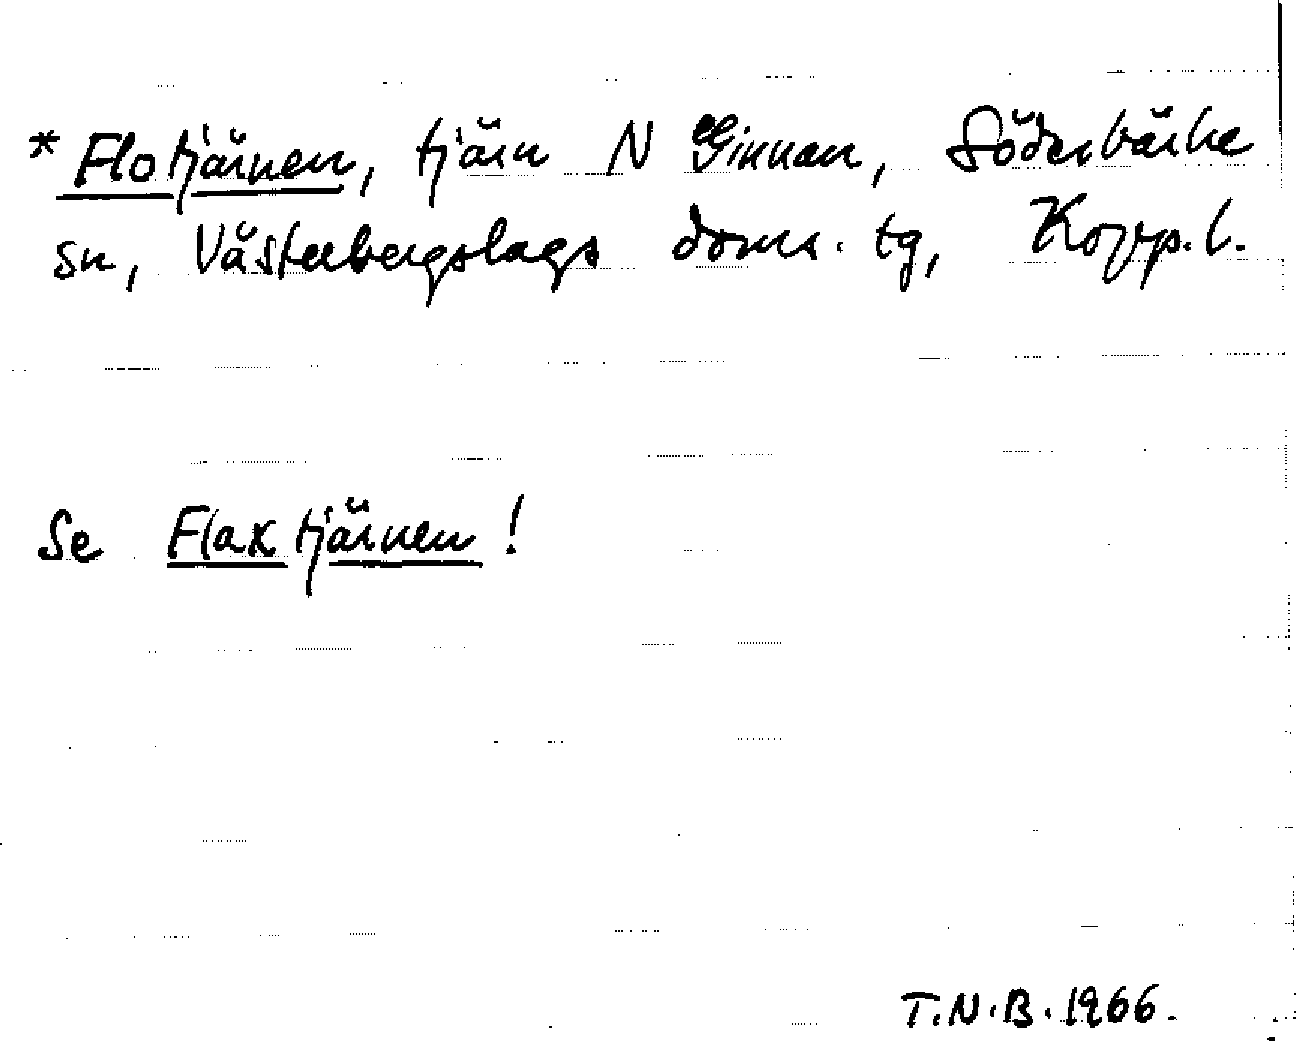 * Flotjärnen, tjärn N Ginnan, Söderbärke
sn, Västerbergslags doms. tg, Kopp. l.
Se Flaxtjärnen!
T.N.B. 1966.